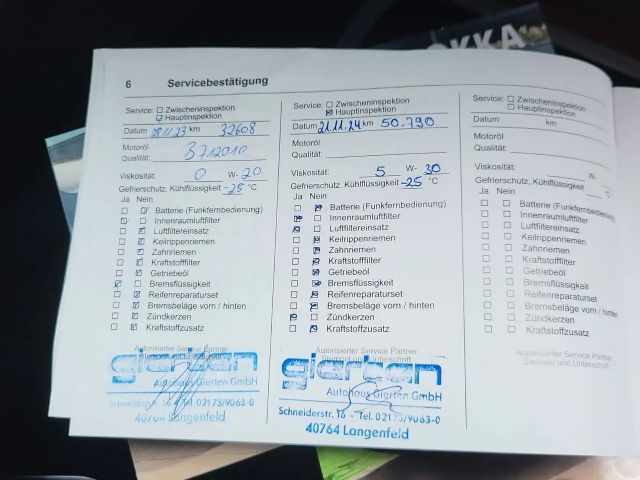 OKKA
6 Servicebestätigung
Service: Zwischeninspektion
Hauptinspektion
Datum 28.11.23 km 32608
Motoröl
Qualität: 3712010
Viskosität: 0 W-20
Gefrierschutz, Kühlflüssigkeit -25 °C
Ja Nein
Batterie (Funkfernbedienung)
Innenraumluftfilter
Luftfiltereinsatz
Keilrippenriemen
Zahnriemen
Kraftstofffilter
Getriebeöl
Bremsflüssigkeit
Reifenreparaturset
Bremsbeläge vorn / hinten
Zündkerzen
Kraftstoffzusatz
Autorisierter Service Partner
Stempel und Unterschrift
gierten
Autohaus Gierten GmbH
Schneiderstr. 16 Tel. 02173/9063-0
40764 Langenfeld
Service: Zwischeninspektion
Hauptinspektion
Datum 21.11.24 km 50.790
Motoröl
Qualität:
Viskosität: 5 W- 30
Gefrierschutz, Kühlflüssigkeit -25 °C
Ja Nein
Batterie (Funkfernbedienung)
Innenraumluftfilter
Luftfiltereinsatz
Keilrippenriemen
Zahnriemen
Kraftstofffilter
Getriebeöl
Bremsflüssigkeit
Reifenreparaturset
Bremsbeläge vorn / hinten
Zündkerzen
Kraftstoffzusatz
Autorisierter Service Partner
Stempel und Unterschrift
gierten
Autohaus Gierten GmbH
Schneiderstr. 16 - Tel. 02173/9063-0
40764 Langenfeld
Service: Zwischeninspektion
Hauptinspektion
Datum km
Motoröl
Qualität:
Viskosität: W-
Gefrierschutz, Kühlflüssigkeit °C
Ja Nein
Batterie (Funkfernbedienung)
Innenraumluftfilter
Luftfiltereinsatz
Keilrippenriemen
Zahnriemen
Kraftstofffilter
Getriebeöl
Bremsflüssigkeit
Reifenreparaturset
Bremsbeläge vorn / hinten
Zündkerzen
Kraftstoffzusatz
Autorisierter Service Partner
Stempel und Unterschrift